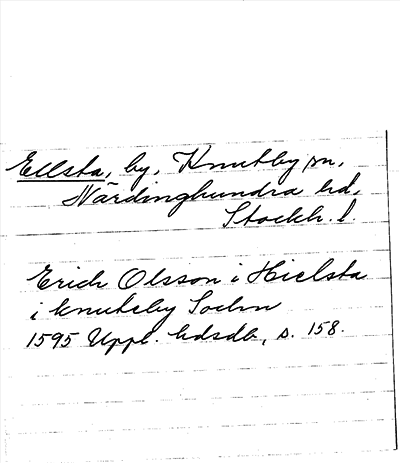 Ellsta, by, Knutby sn,
Närdinghundra hd,
Stockh. l.
Erich Olsson i Hielsta
i knuteby Sochn
1595 Uppl. hdsdb, s. 158.